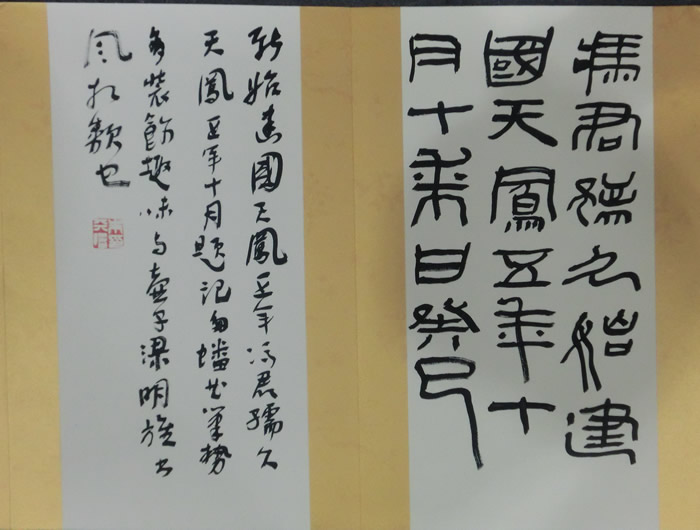 馮君孺久始建
國天鳳五年十
月十柒日癸巳
新始建國天鳳五年馮君孺久
天鳳五年十月題記勾蟠其筆勢
多裝飾趣味与壺子梁明旌書
風相類也